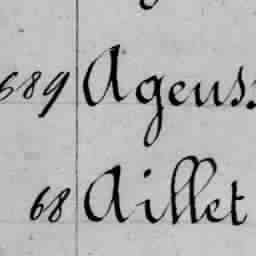 689 Ageuss
68 Aillet